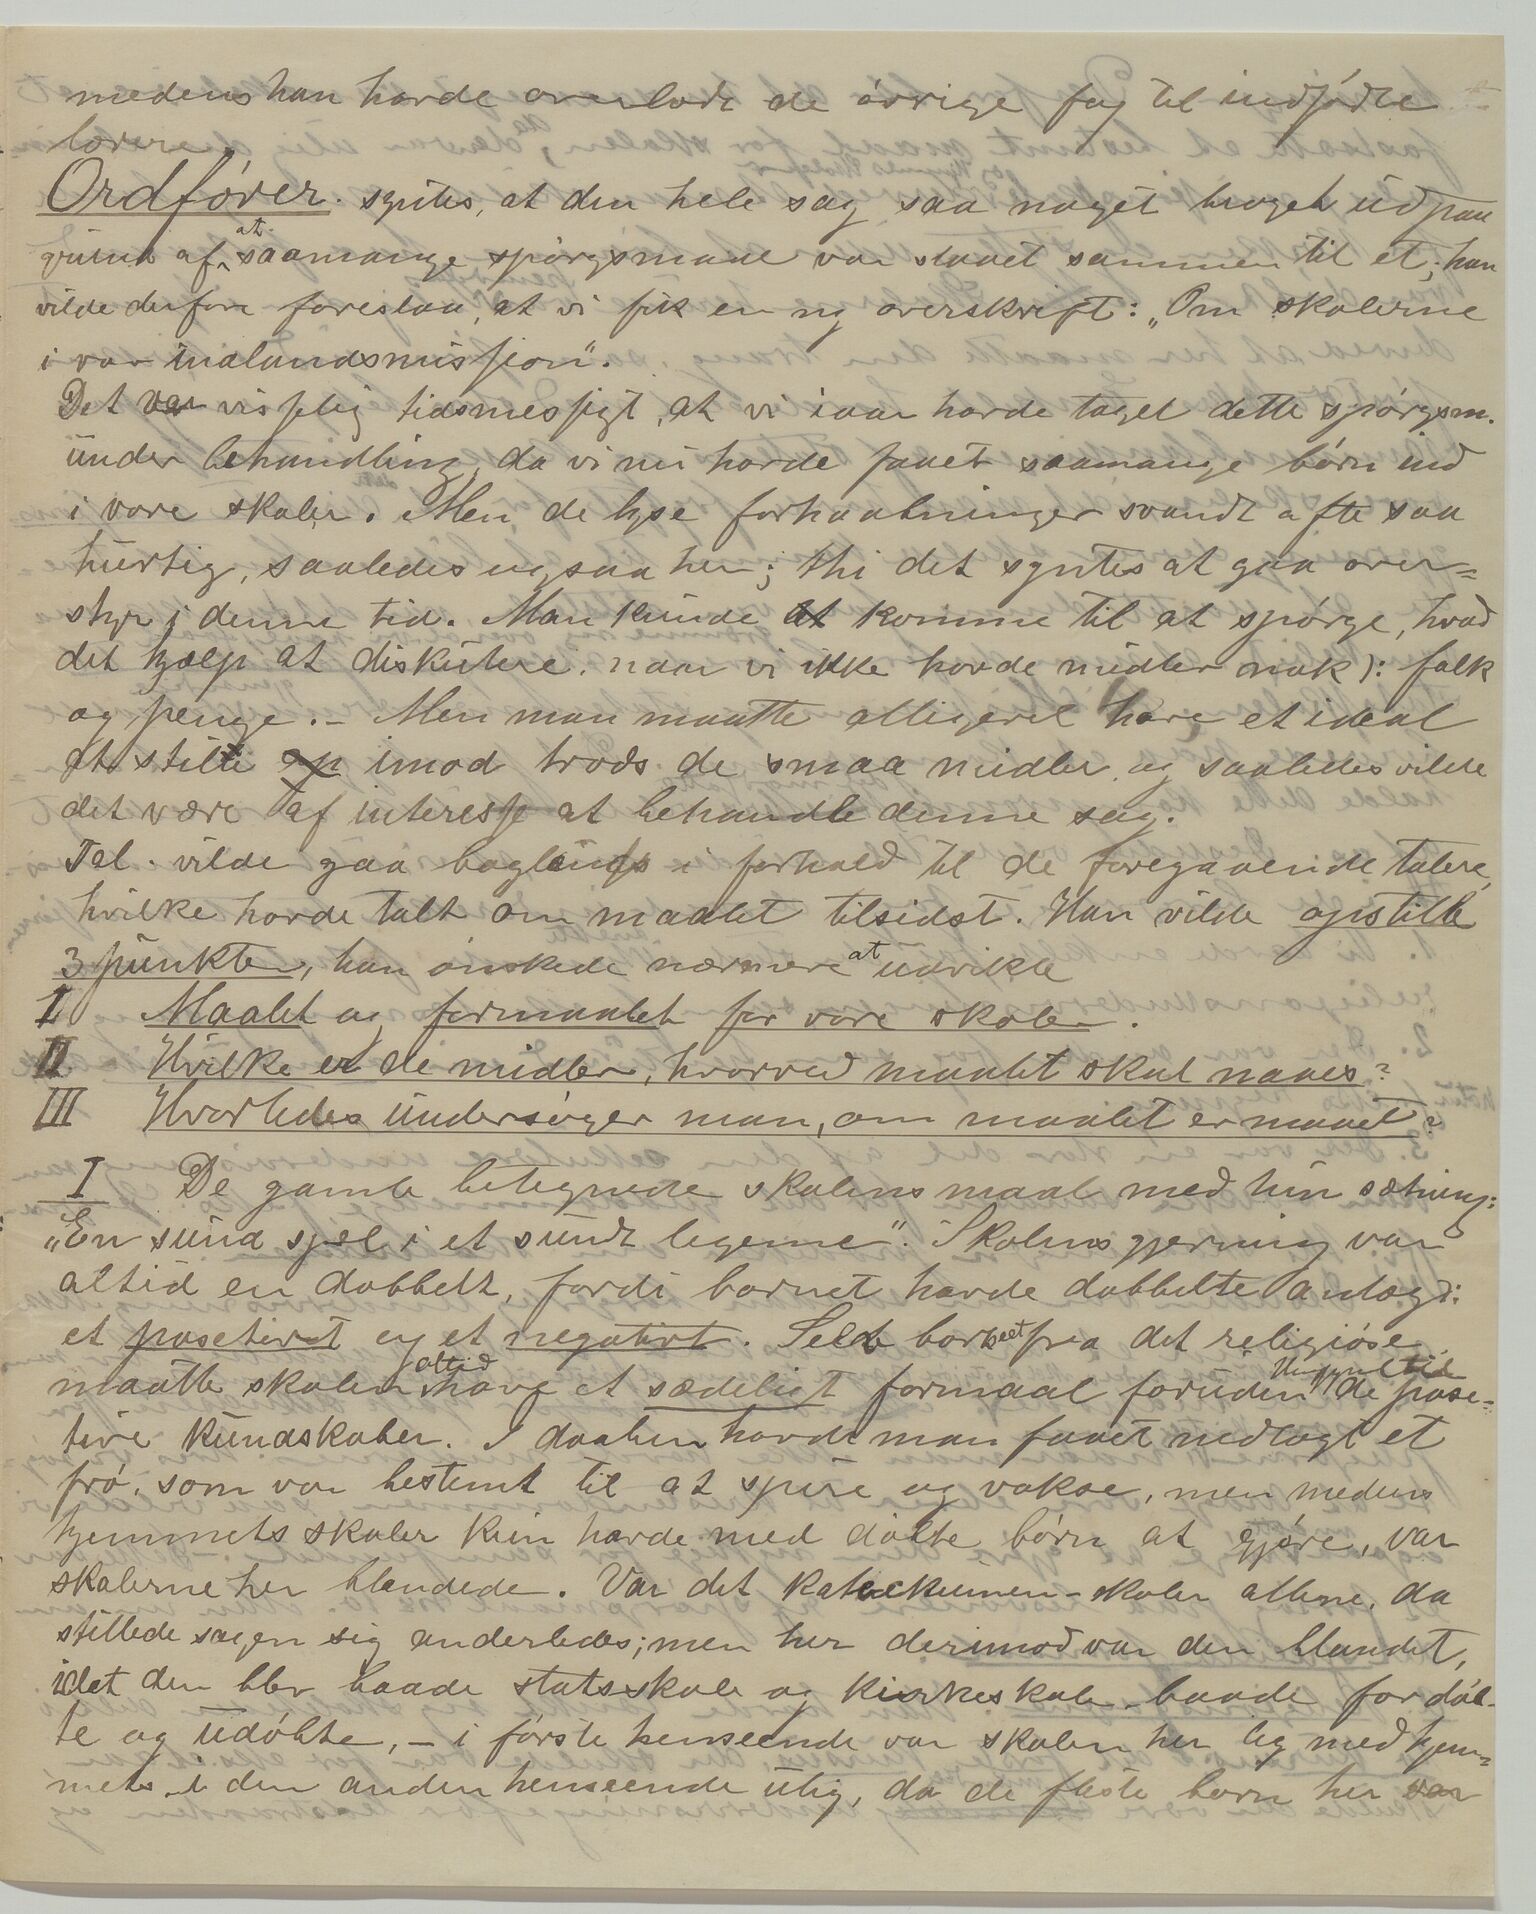 medens han havde overladt de øvrige fag til indfødte
lærere.
Ordfører. syntes, at den hele sag saa noget broget ud paa
grund af at saamange spørgsmaal var slaaet sammen til et; han
vilde derfor foreslaa, at vi fik en ny overskrift: „Om skolerne
i vor indlandsmission“.
Det var visselig tidsmessigt, at vi iaar havde taget dette spørgsm.
under behandling, da vi nu havde faaet saamange børn ind
i vore skoler. Men de lyse forhaabninger svandt ofte saa
hurtig, saaledes ogsaa her; thi det syntes at gaa over-
styr i denne tid. Man kunde komme til at spørge, hvad
det hjælp at diskutere, naar vi ikke havde midler nok ɔ: folk
og penge. – Men man maatte alligevel have et ideal
at stille op imod trods de smaa midler og saaledes vilde
det være af interesse at behandle denne sag.
Tal. vilde gaa baglends i forhold til de foregaaende talere,
hvilke havde talt om maalet tilsidst. Han vilde opstille
3 punkter, han ønskede nærmere at udvikle
I Maalet og formaalet for vore skoler.
II Hvilke er de midler, hvorved maalet skal naaes?
III Hvorledes undersøger man, om maalet er naaet?
I De gamle betegnede skolens maal med hin sætning:
„En sund sjæl i et sundt legeme“. Skolens gjerning var
altid en dobbelt, fordi barnet havde dobbelte anlæg:
et posetivt og et negativt. Selv borseet fra det religiøse
maatte skolen altid have et sædeligt formaal foruden de pose-
tive kundskaber. I daaben havde man faaet nedlagt et
frø, som var bestemt til at spire og vokse, men medens
hjemmets skoler kun havde med døbte børn at gjøre, var
skolerne her blandede. Var det katekumen-skoler allene, da
stillede sagen sig anderledes; men her derimod var den blandet,
idet den blev baade statsskole og kirkeskole, baade for døb-
te og udøbte, – i første henseende var skolen her lig med hjem-
mets i den anden henseende ulig, da de fleste børn her var